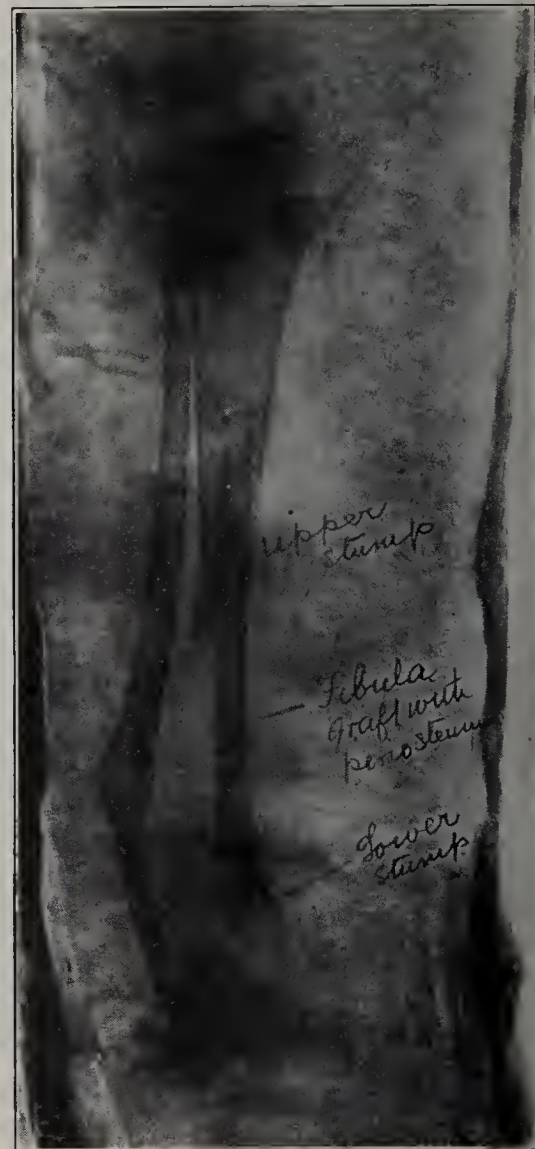 upper
stump
Fibula
graft with
periosteum
Lower
stump